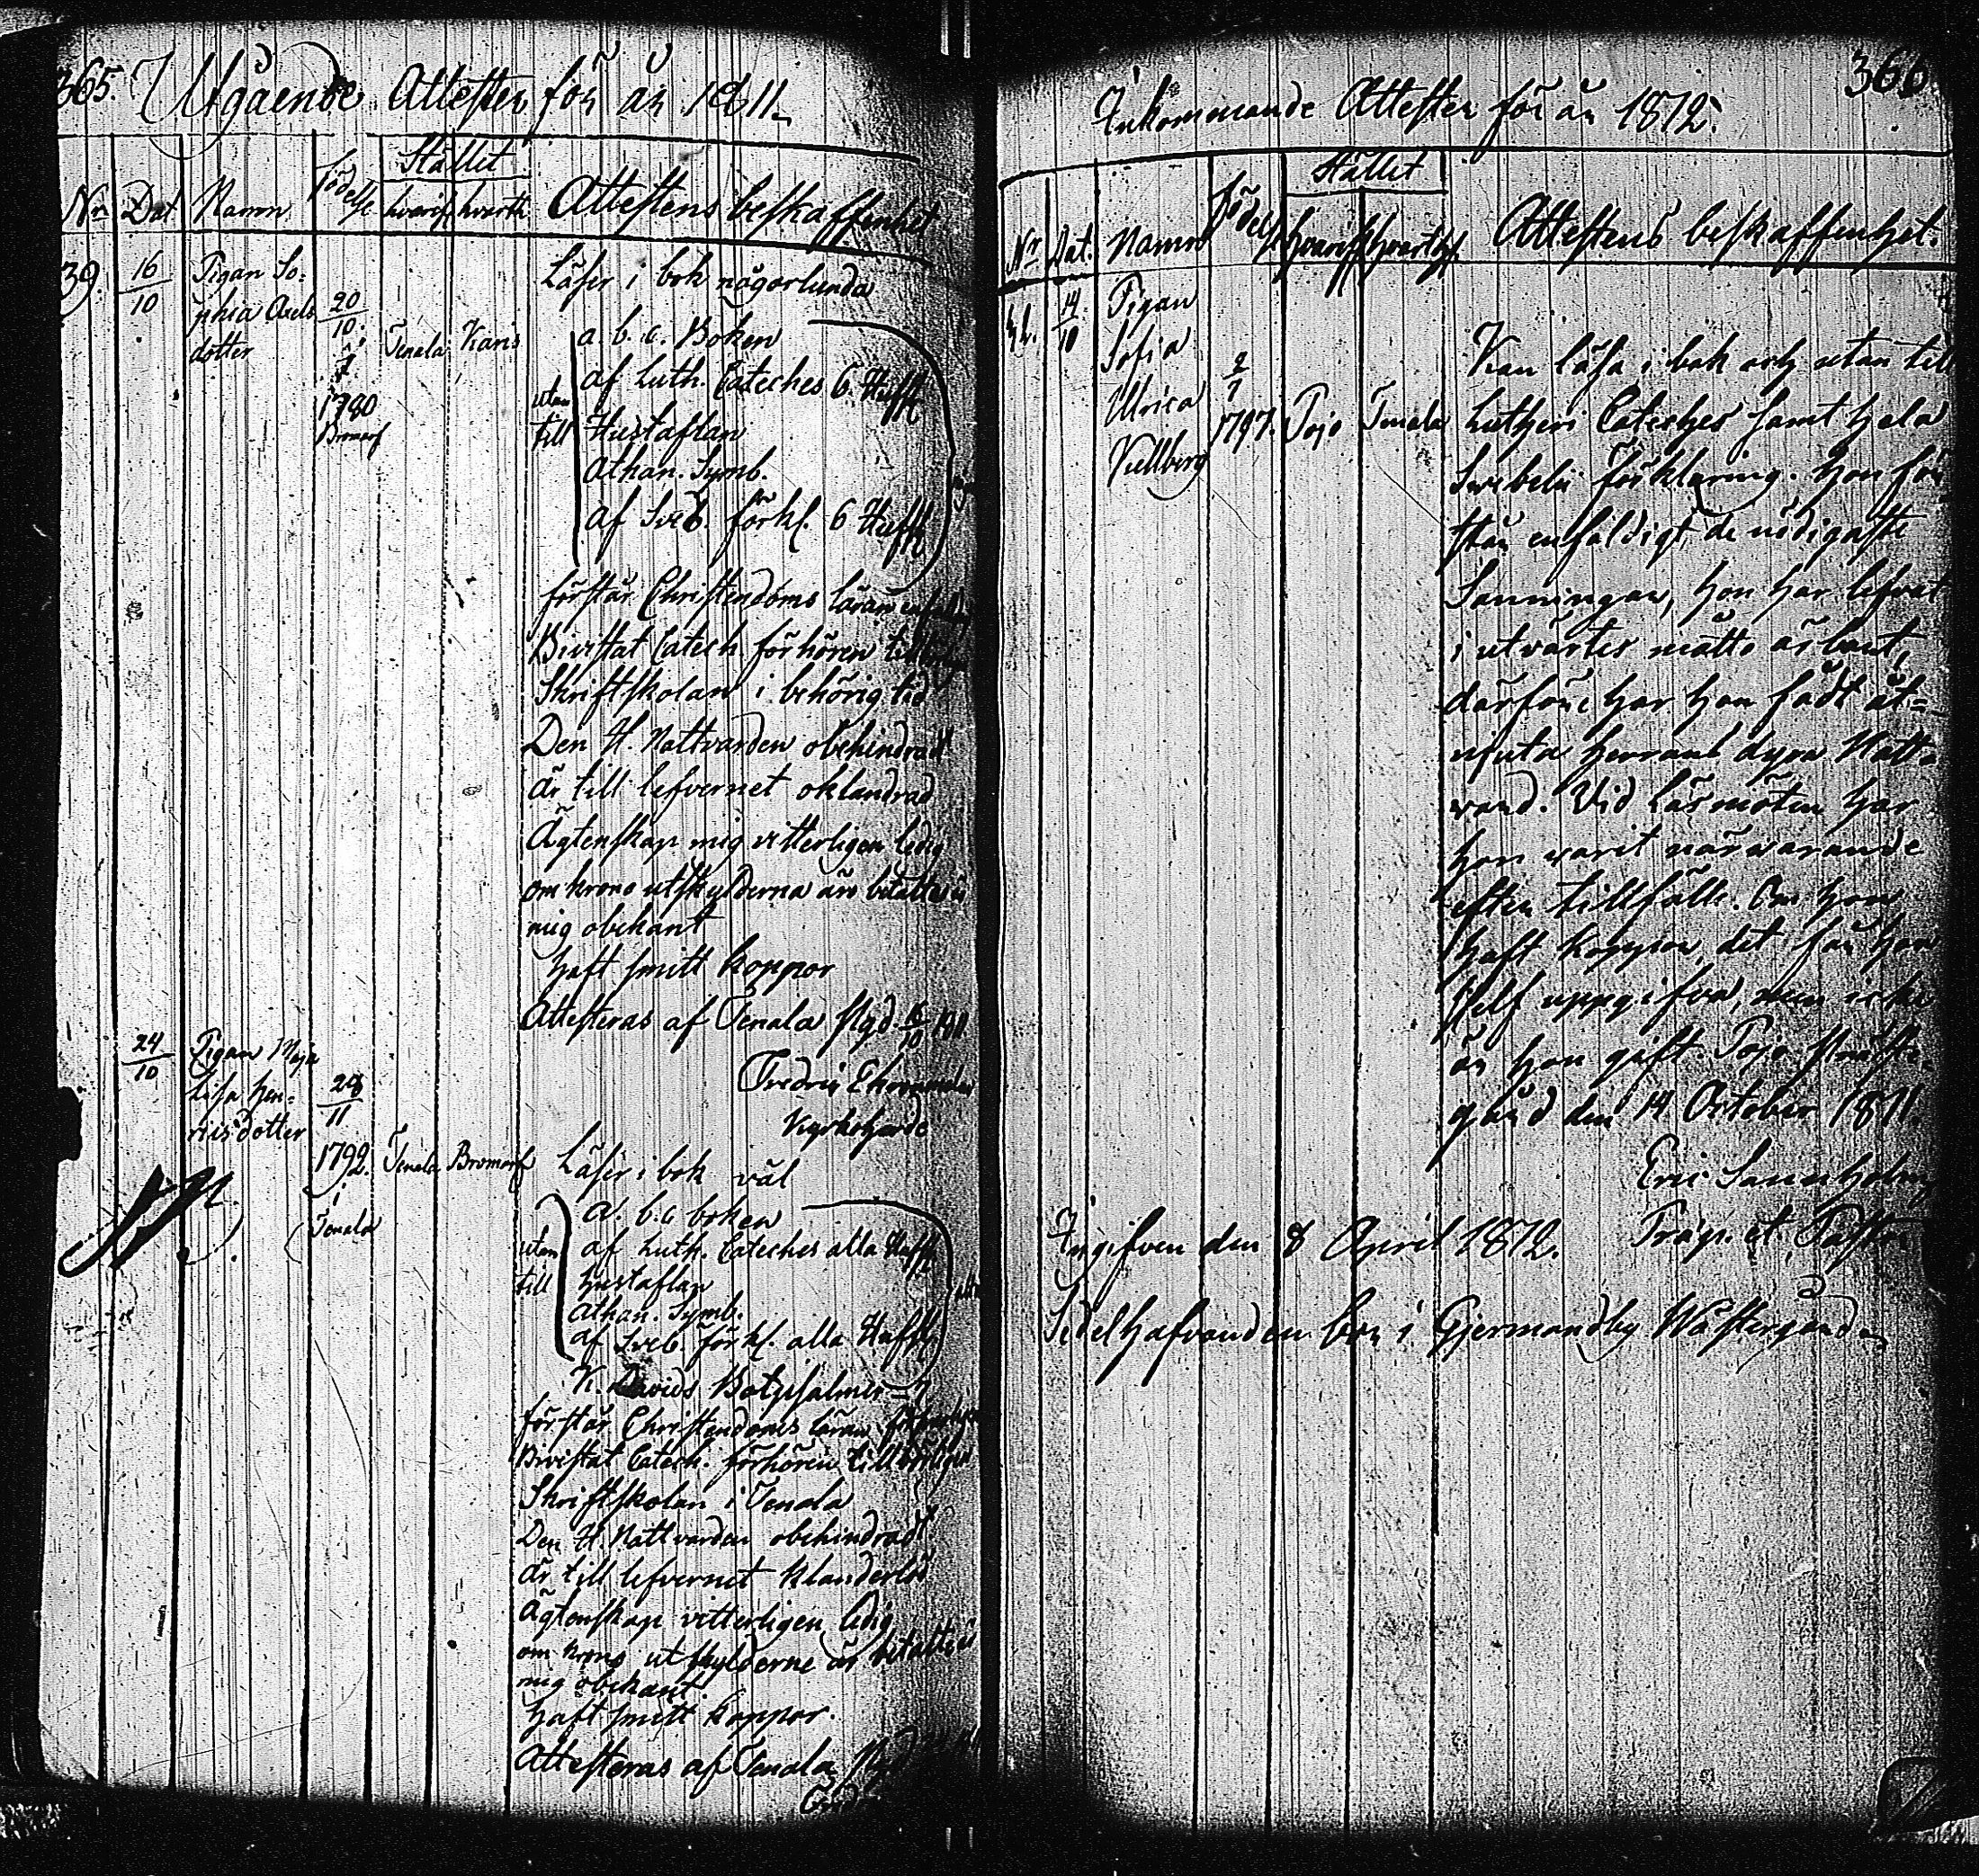 365. Utgående Attester för år 1811.
Stället
Nr. Dat. Namn födelse hvarif hvarth Attestens beskaffenhet
39. 16/10 Pigan So-
phia Axels
dotter
20/10
1780
Bromarf
Tenala Karis
Läser i bok någorlunda
utan till
a. b. c. Boken
af Luth. Cateches 6. Hufst
Hustaflan
Athan. Symb.
af Sveb. förkl. 6 Hufst
förstår Christendoms läran
Bivistat Catech. förhören
Skriftskolan i behörig tid
Den H. Nattvarden obehindradt
är till lefvernet oklandrad
Ägtenskap mig vitterligen ledig
om krono utskylderna äro betalte är
mig obekant
haft smitt koppor
Attesteras af Tenala stgd 16/10 1811.
Fredric
Kyrkoherde
24/10 Pigan Maja
Lisa Hen-
ricsdotter
28/11
1792.
i
Tenala
Tenala Bromarf
Läser i bok väl
utan till
a. b. c boken
af Luth. Cateches alla Hufst
hustaflan
Athan. Symb.
af Sveb. förkl. alla Hufst
K. Davids Botpsalmer 7
förstår Christendoms läran
Bivistat Catech. förhören tillbörligen
Skriftskolan i Tenala
Den H. Nattvarden obehindradt
är till lefvernet klanderlös
Ägtenskap vitterligen ledig
om krono utskylderne är betalte är
mig obekant.
haft smitt koppor.
Attesteras af Tenala
366
Inkommande Attester för år 1812.
Stället
Nr. Dat. Namn födels hvarif hvarth Attestens beskaffenhet.
14/10 Pigan
Sofia
Ulrica
Vellberg
2/7
1797. Pojo Tenala
Kan läsa i bok och utan till
Lutheri Cateches samt hela
Swebelii förklaring. Hon för-
står enfaldigt de nödigaste
Sanningar, hon har lefvat
i utvärtes måtto ärbart,
därföre har hon fådt åt-
njuta Herrans dyra Natt-
vard. Vid Läsmöten har
hon varit närvarande
efter tillfälle. Om hon
haft koppor, det får hon
sjelf uppgifva, men icke
är hon gift. Pojo präst-
gård den 14 October 1811.
Eric Sannholm
Præp. et Pastor
Ingifven den 8 April 1812.
Sedelhafvanden bor i Gjermundby Wästergård